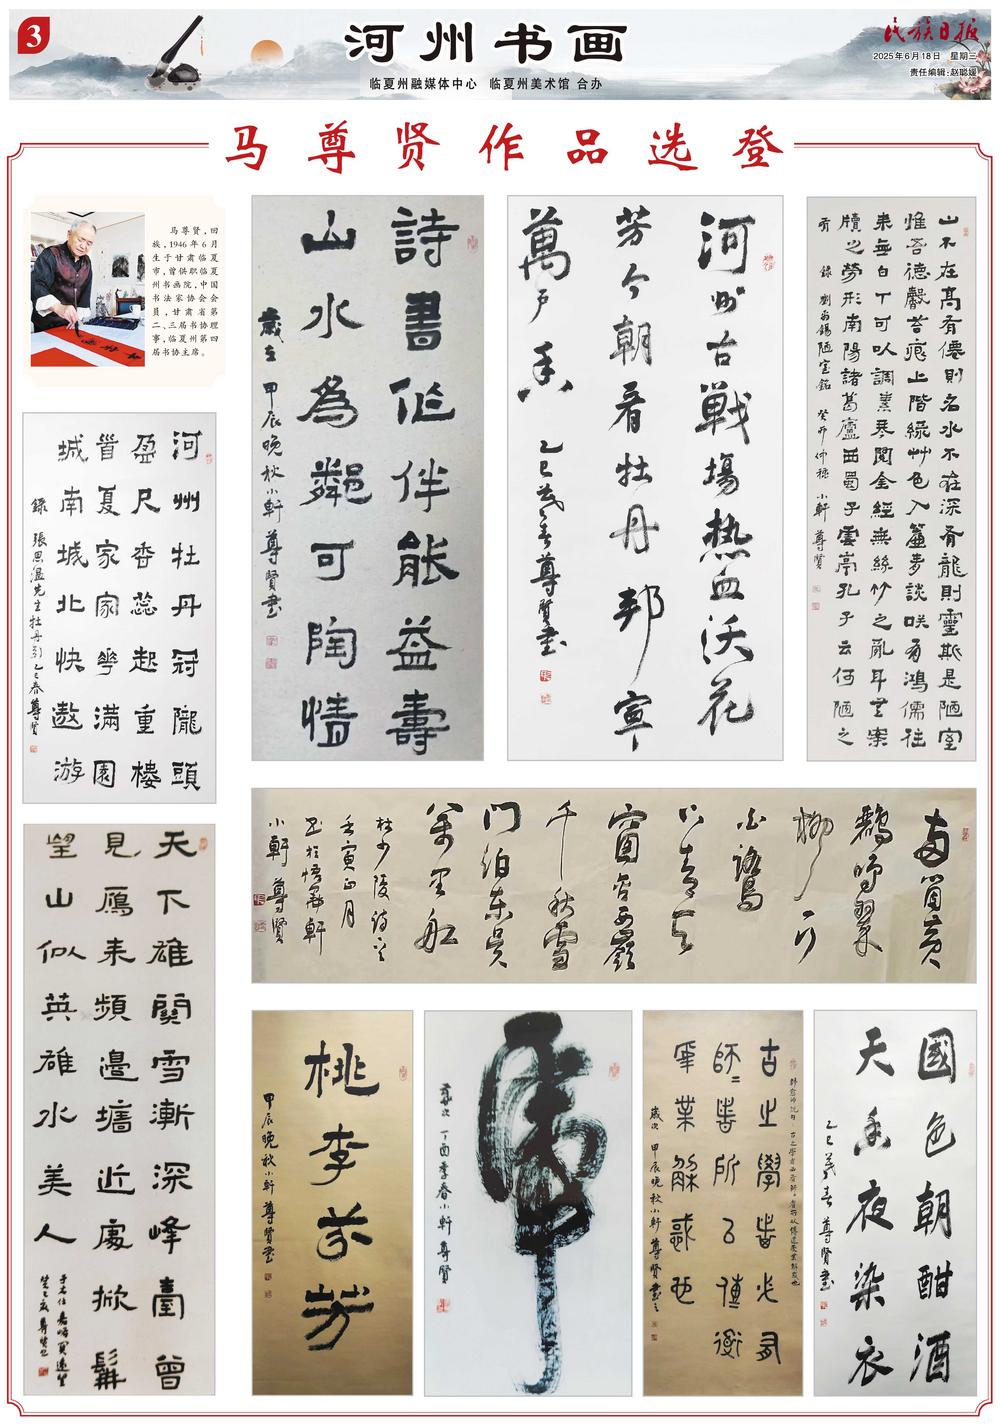 3
河州书画
临夏州融媒体中心 临夏州美术馆 合办
民族日报
2025年6月18日 星期三
责任编辑:赵聪媛
马尊贤作品选登
马尊贤,回
族,1946年6月
生于甘肃临夏
市,曾供职临夏
州书画院,中国
书法家协会会
员,甘肃省第
二、三届书协理
事,临夏州第四
届书协主席。
詩書作伴能益壽
山水為鄰可陶情
歲在甲辰晚秋小軒尊賢書
河州古戰場熱血沃花
芳今朝看牡丹邦寧
萬戶香
乙巳春尊賢書
山不在高有僊則名水不在深有龍則靈斯是陋室
惟吾德馨苔痕上階綠艸色入簾青談咲有鴻儒往
来無白丁可以調素琴閱金經無絲竹之亂耳無案
牘之勞形南陽諸葛廬西蜀子雲亭孔子云何陋之
有
錄劉禹錫陋室銘 癸卯仲穗 小軒尊賢
河州牡丹冠隴頭
盈尺香蕊起重樓
暮夏家家花滿園
城南城北快遨游
錄張思溫先生牡丹 乙巳春尊賢
兩箇黃
鸝鳴翠
柳一行
白鷺
上青天
窗含西嶺
千秋雪
門泊東吳
萬里船
杜少陵詩
壬寅正月
書於悟 軒
小軒尊賢
天下雄關雪漸深峰臺曾
見雁来頻邊墻近處掀髯
望山似英雄水美人
于右任嘉峪關遠望
尊賢書
桃李芬芳
甲辰晚秋小軒尊賢書
虎
歲次丁酉季春小軒尊賢
古之學者必有
師師者所以傳道
受業解惑也
歲次甲辰晚秋小軒尊賢書之
國色朝酣酒
天香夜染衣
乙巳春尊賢書